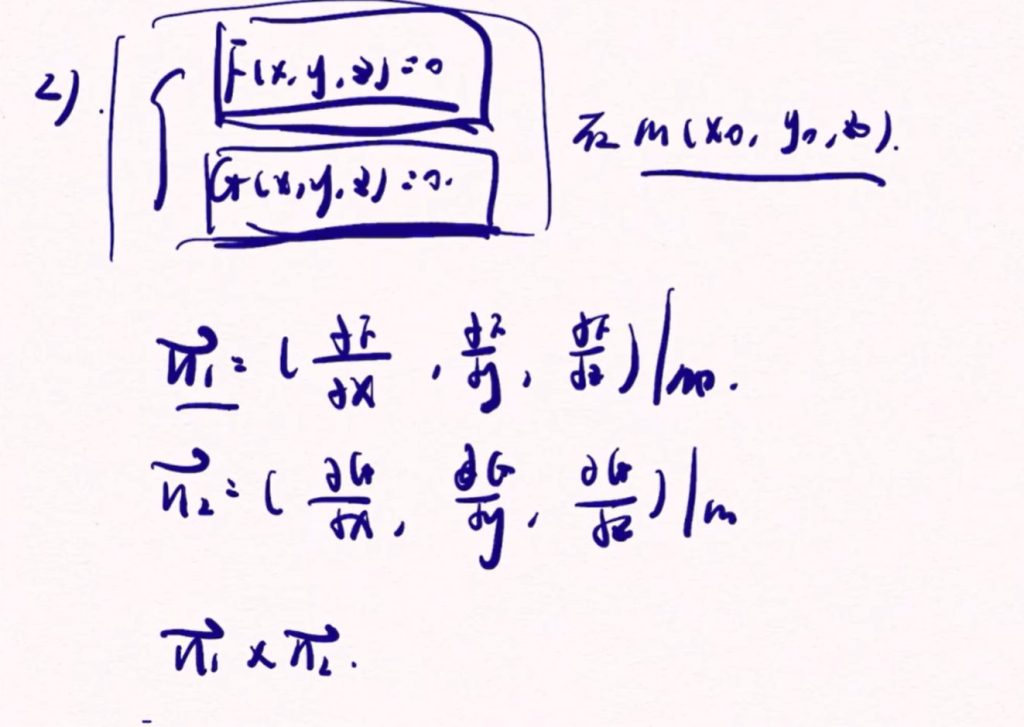 2).
F(x, y, z)=0
G(x, y, z)=0.
在 m(x0, y0, z0).
n⃗1 = (∂F/∂x, ∂F/∂y, ∂F/∂z)|m.
n⃗2 = (∂G/∂x, ∂G/∂y, ∂G/∂z)|m
n⃗1 × n⃗2.